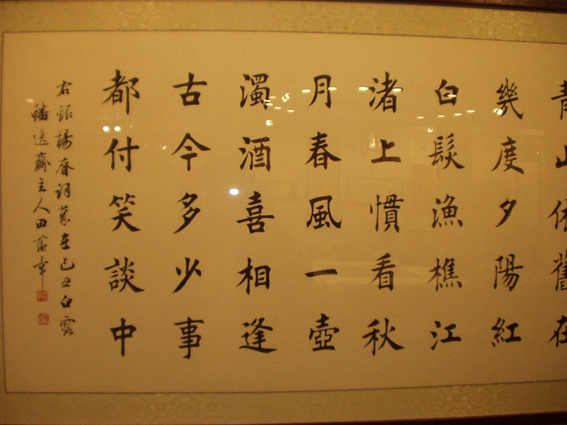 青山依舊在
幾度夕陽紅
白髮漁樵江
渚上慣看秋
月春風一壺
濁酒喜相逢
古今多少事
都付笑談中
右錄楊慎詞歲在己丑白露
齋主人田蘊章